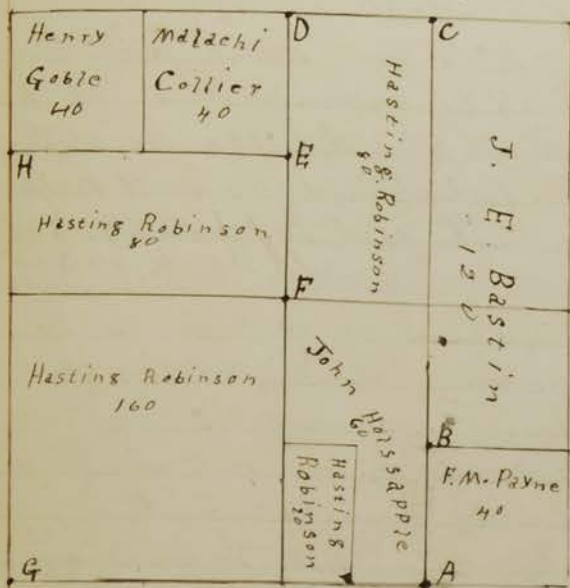 Henry
Goble
40
Malachi
Collier
40
D
C
Hasting Robinson
80
J. E. Bastin
120
H
E
Hasting Robinson
80
F
Hasting Robinson
160
John Holssapple
60
B
Hasting
Robinson
20
F. M. Payne
40
G
A